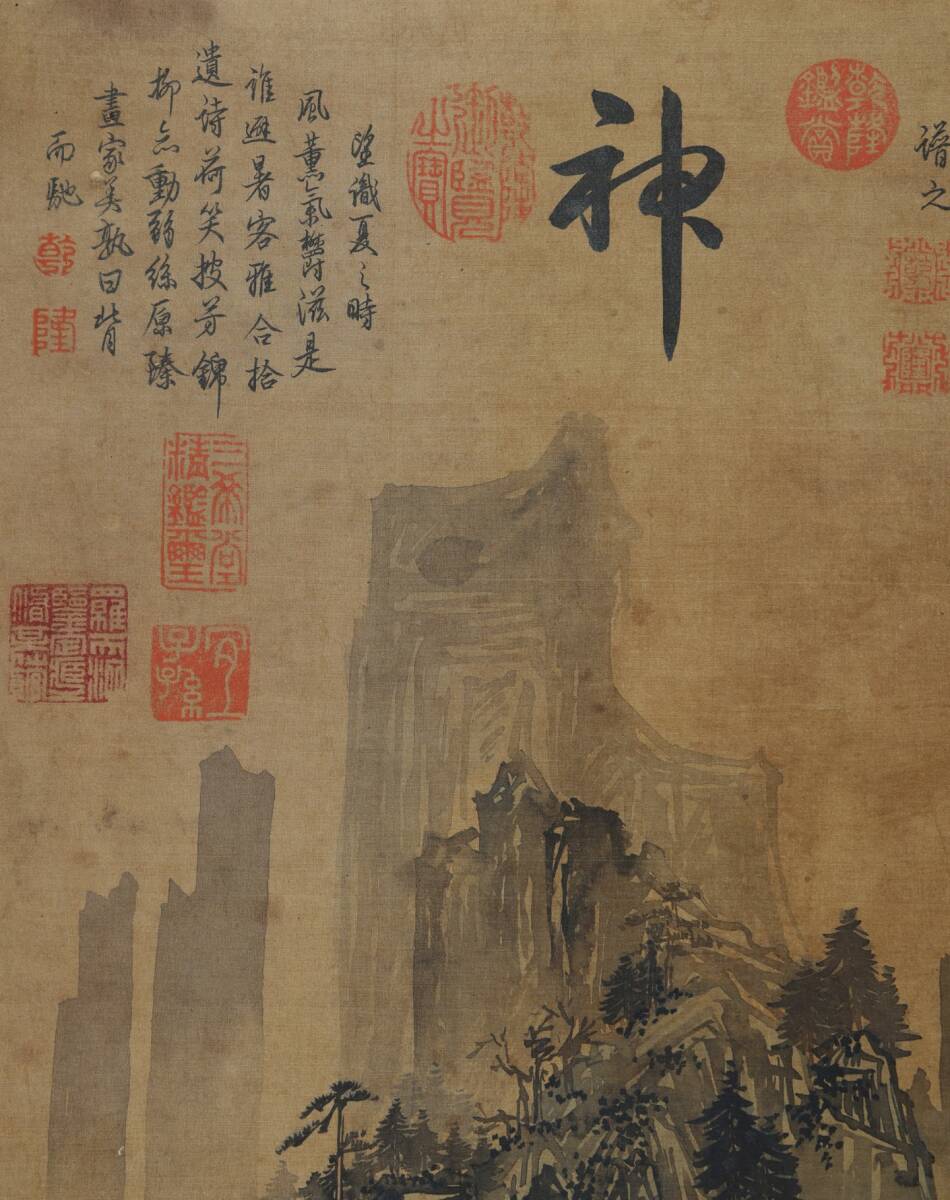 譜之
乾隆鑑賞
神
乾隆御覽之寶
望識夏之時
風薰氣鬱滋是
誰避暑客雅合拾
遺詩荷笑披芳錦
柳忘動弱絲原臻
畫家美孰曰背
而馳
乾
隆
三希堂
精鑑璽
宜
子孫